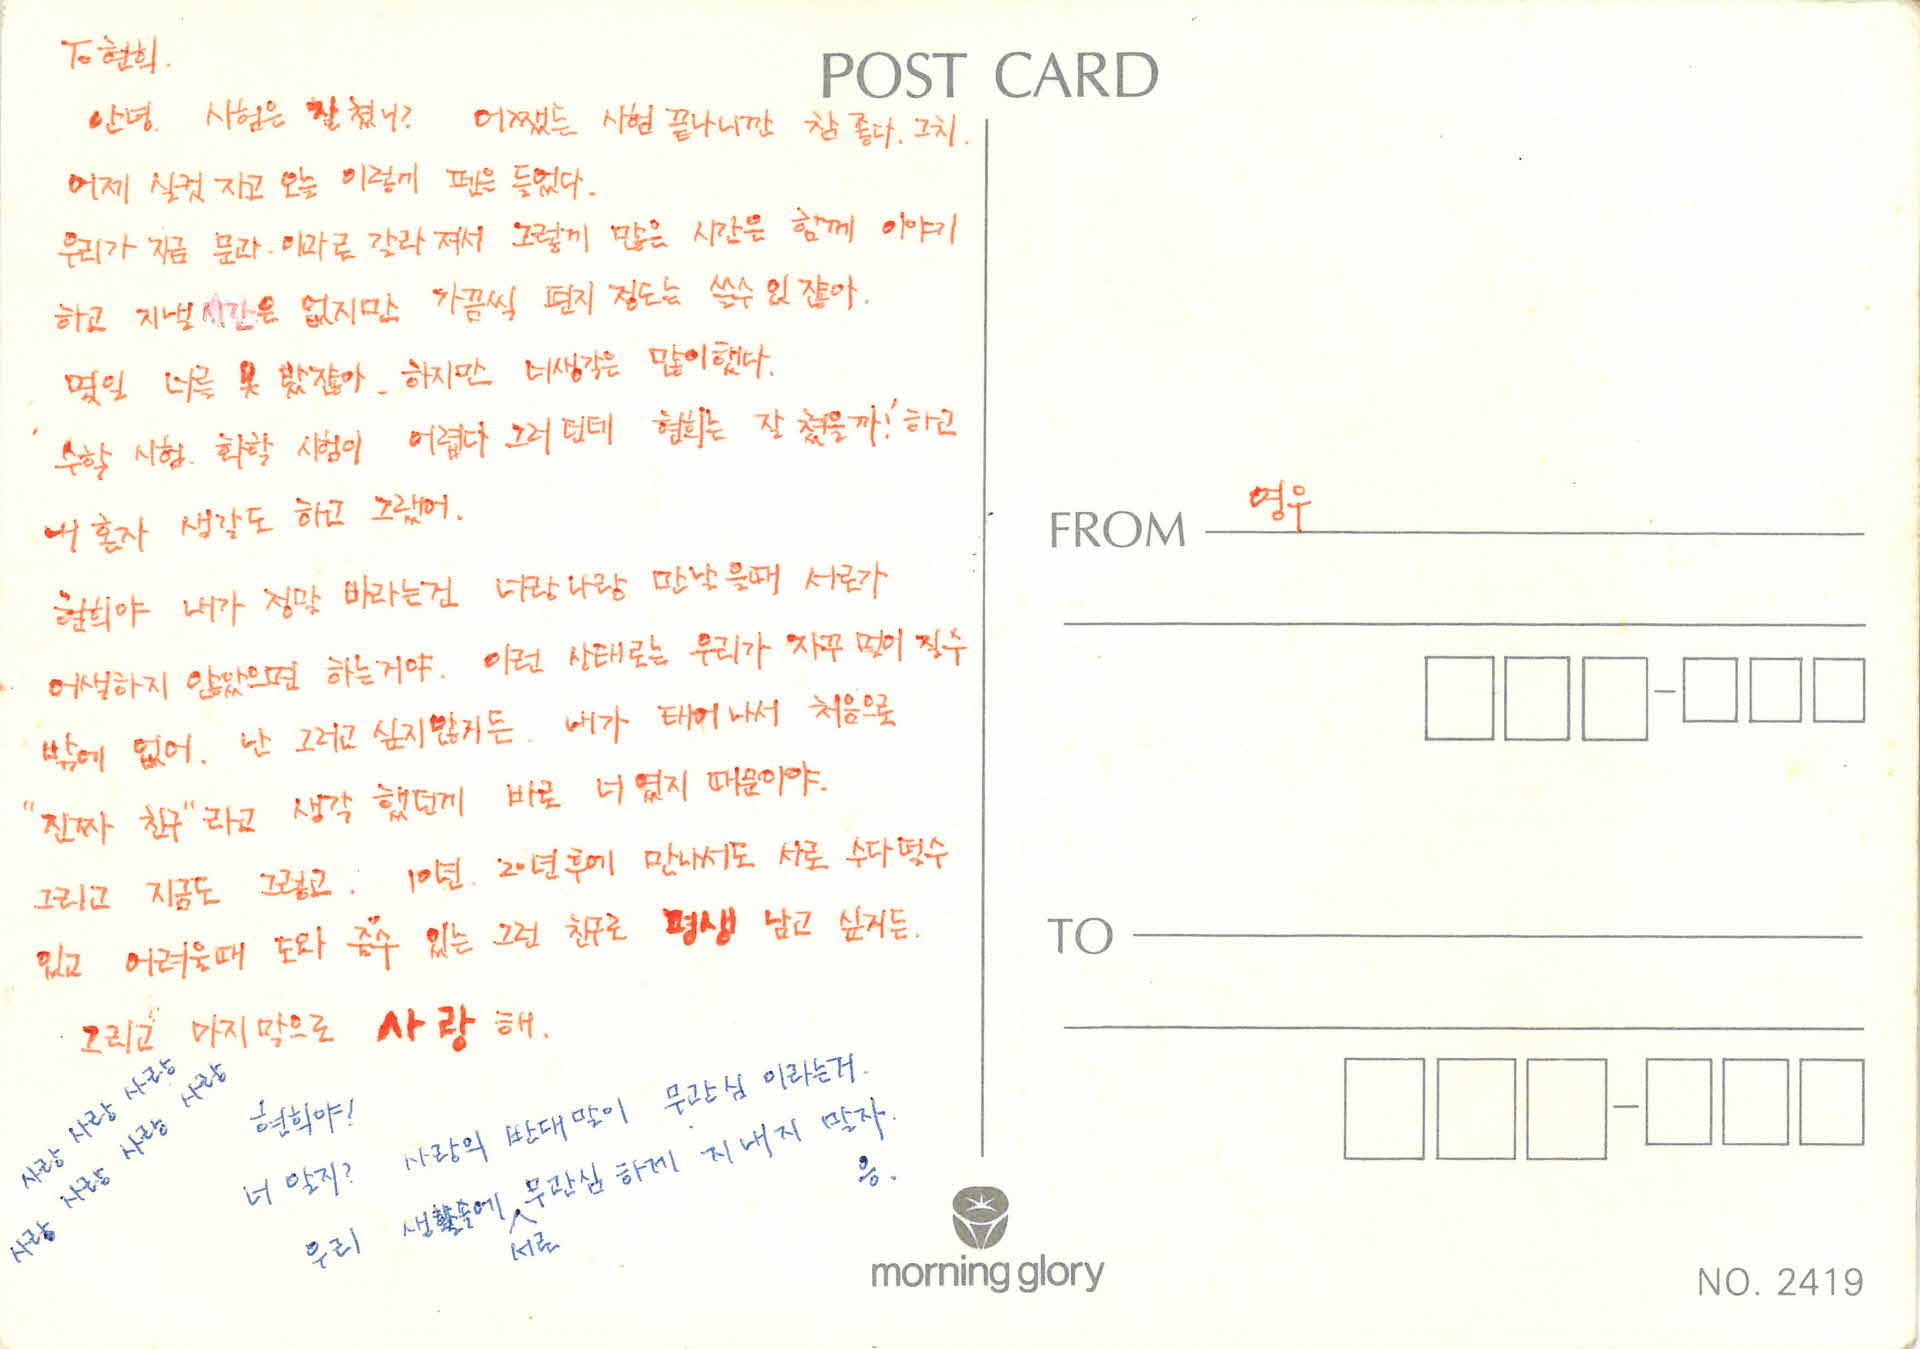 To 현희.
안녕. 시험은 잘 쳤니? 어쨌든 시험 끝나니깐 참 좋다. 그치.
어제 실컷 자고 오늘 이렇게 펜은 들었다.
우리가 지금 문과-이과로 갈라져서 그렇게 많은 시간은 함께 이야기
하고 지낼 시간은 없지만 가끔씩 편지 정도는 쓸수 있잖아.
몇일 너를 못 봤잖아. 하지만 너생각은 많이했다.
'수학 시험. 화학 시험이 어렵다 그러던데 현희는 잘 쳤을까!' 하고
내 혼자 생각도 하고 그랬어.
현희야 내가 정말 바라는건 너랑나랑 만났을때 서로가
어색하지 않았으면 하는거야. 이런 상태로는 우리가 자꾸 멀어 질수
밖에 없어. 난 그러고 싶지않거든. 내가 태어나서 처음으로
"진짜 친구"라고 생각 했던게 바로 너였지 때문이야.
그리고 지금도 그렇고. 10년. 20년후에 만나서도 서로 수다떨수
있고 어려울때 도와 줄수 있는 그런 친구로 평생 남고 싶거든.
그리고 마지막으로 사랑해.
사랑 사랑 사랑
사랑 사랑 사랑 사랑
현희야!
너 알지? 사랑의 반대말이 무관심 이라는거.
우리 생활들에 서로 무관심 하게 지내지 말자.
응.
POST CARD
FROM 영우
TO
morning glory
NO. 2419